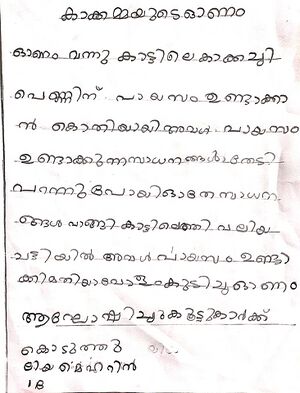 കാക്കമ്മയുടെ ഓണം
ഓണം വന്നു കാട്ടിലെ കാക്കച്ചി
പെണ്ണിന് പായസം ഉണ്ടാക്കാ
ൻ കൊതിയായി അവൾ പായസം
ഉണ്ടാക്കുന്ന സാധനങ്ങൾ തേടി
പറന്നുപോയി ഓരേ സാധന
ങ്ങൾ വാങ്ങി കാട്ടിലെത്തി വലിയ
ചട്ടിയിൽ അവൾ പായസം ഉണ്ടാ
ക്കി മതിയാവോളം കുടിച്ചു ഓണം
ആഘോഷിച്ചു കൂട്ടുകാർക്ക്
കൊടുത്തു
ദിയ മെഹറിൻ